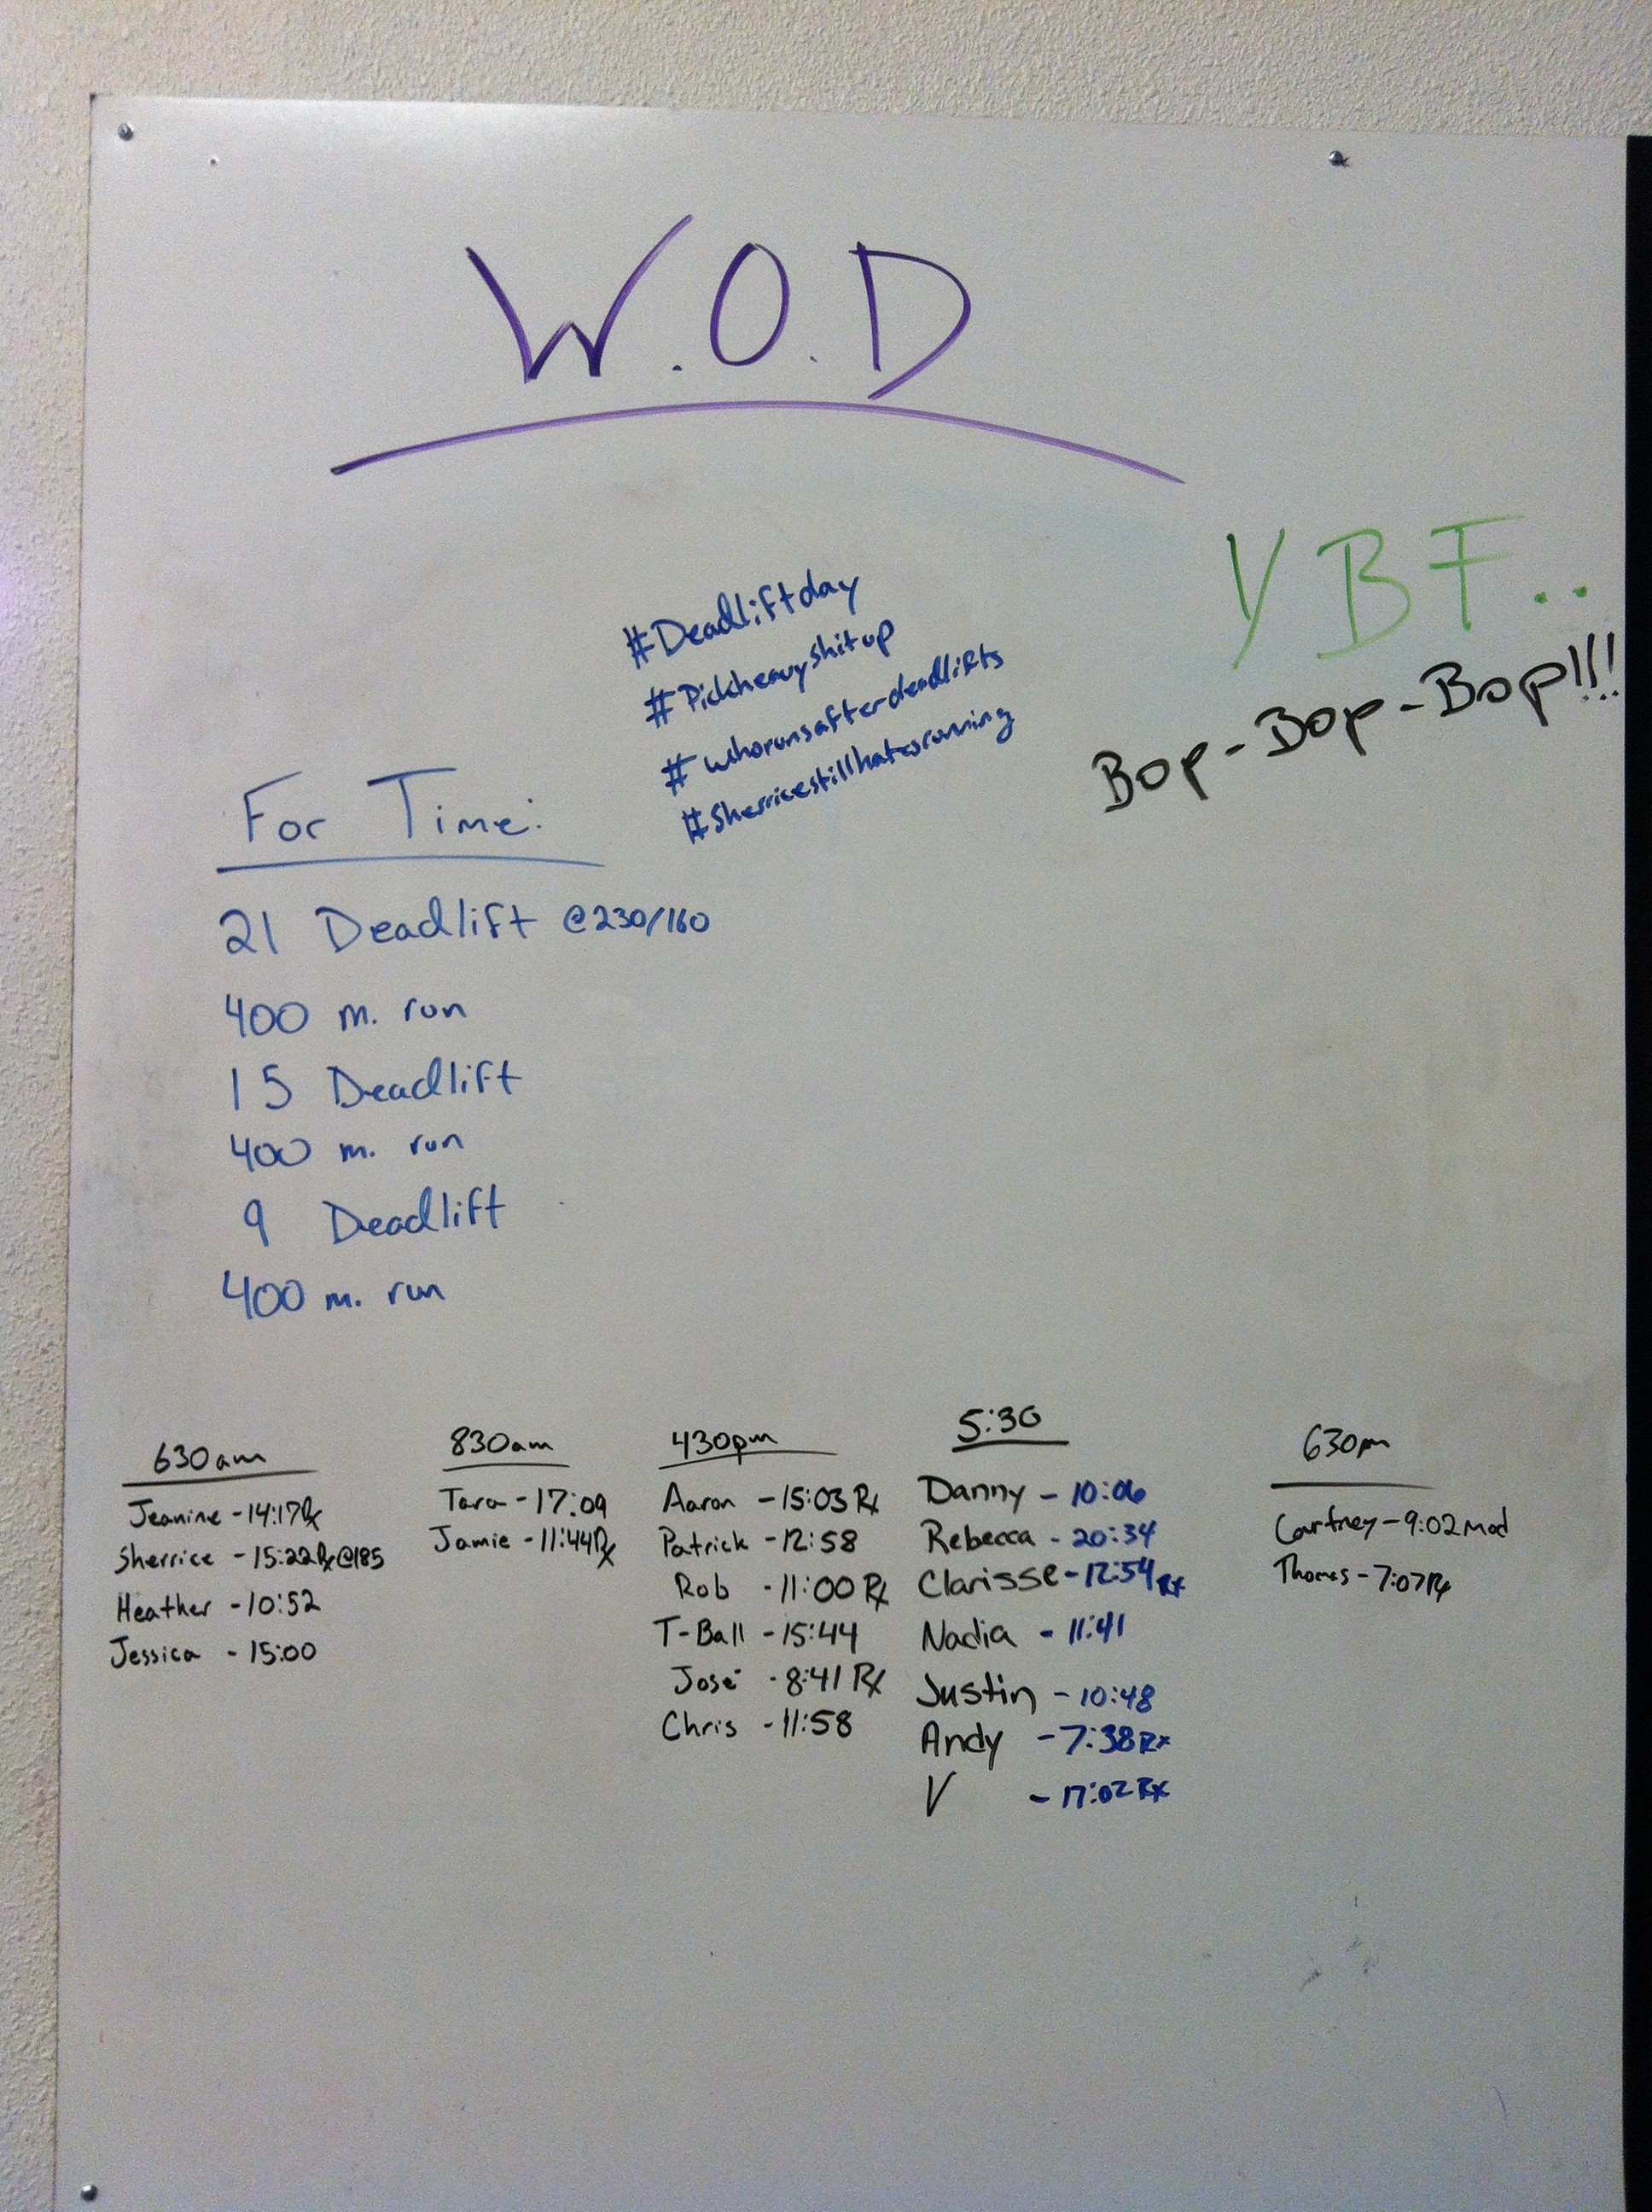 W.O.D
YBF..
Bop-Bop-Bop!!!
#Deadliftday
#Pickheavyshitup
#whorunsafterdeadlifts
#Sherricestillhatesrunning
For Time:
21 Deadlift @230/160
400 m. run
15 Deadlift
400 m. run
9 Deadlift
400 m. run
630am
Jeanine - 14:17Rx
Sherrice - 15:22Rx@185
Heather - 10:52
Jessica - 15:00
830am
Tara - 17:09
Jamie - 11:44Rx
430pm
Aaron - 15:03 Rx
Patrick - 12:58
Rob - 11:00 Rx
T-Ball - 15:44
José - 8:41 Rx
Chris - 11:58
5:30
Danny - 10:06
Rebecca - 20:34
Clarisse - 12:54 Rx
Nadia - 11:41
Justin - 10:48
Andy - 7:38 Rx
V - 17:02 Rx
630pm
Cartney - 9:02 Mod
Thomas - 7:07Rx